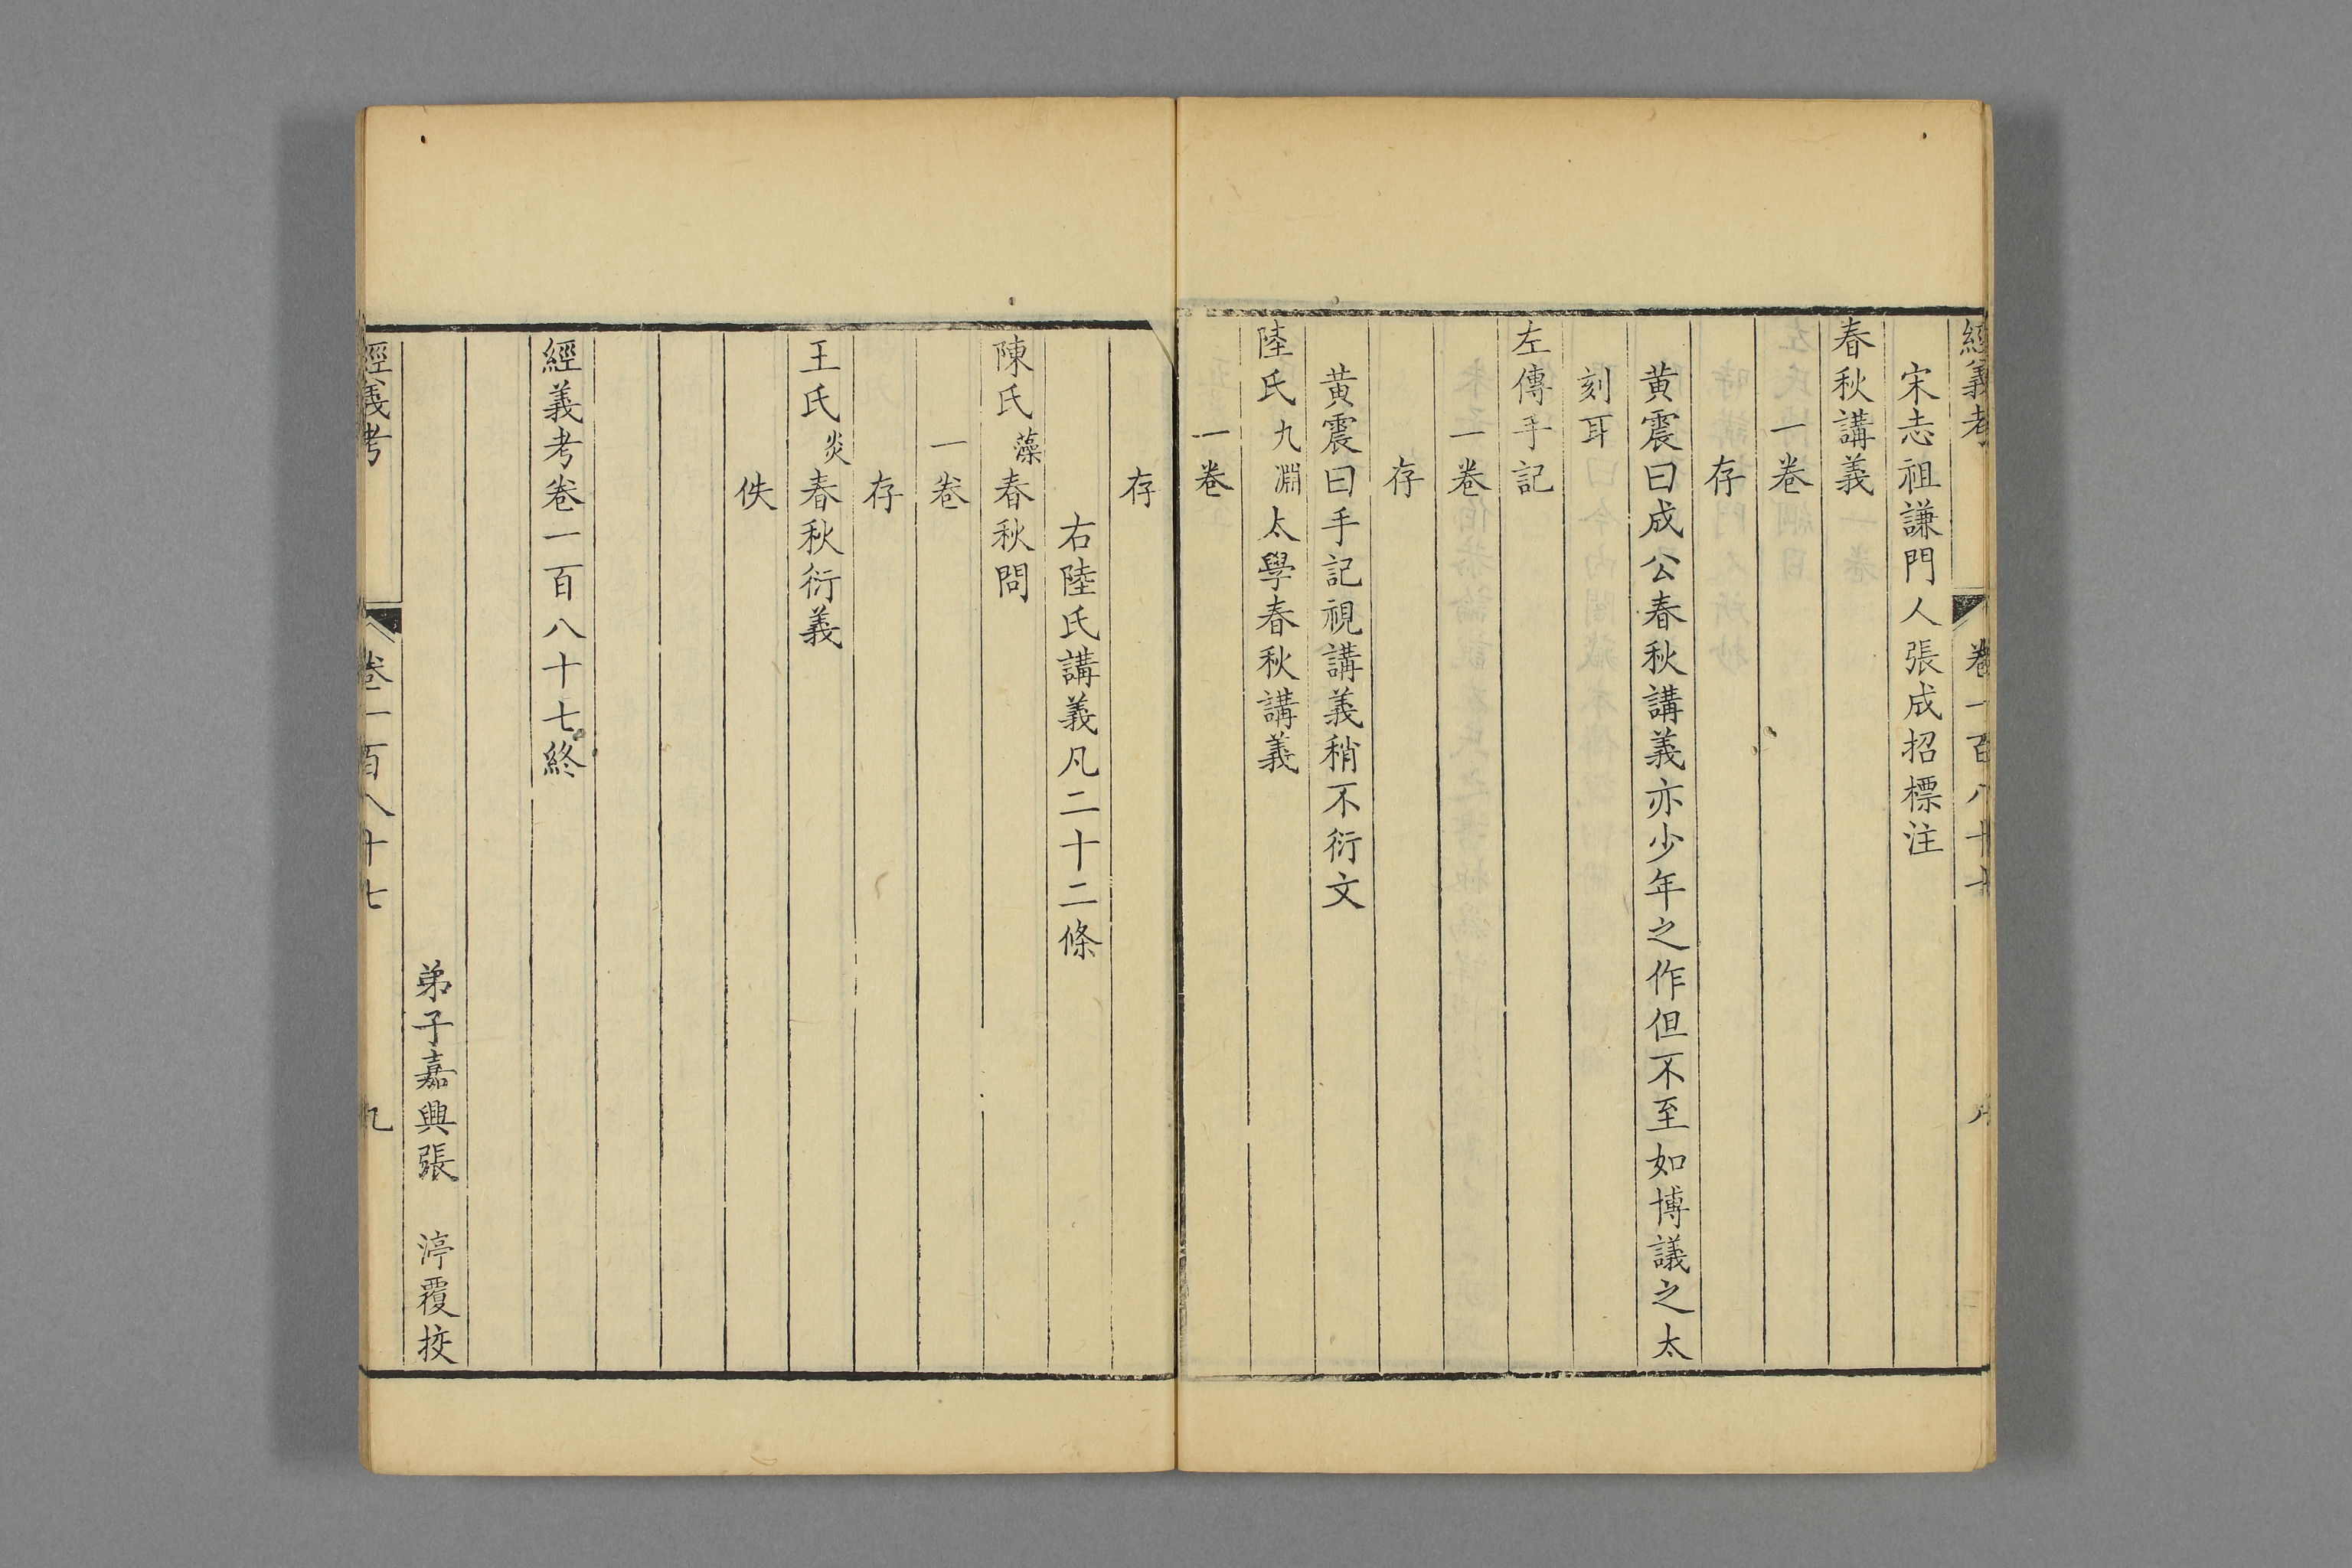 經義考 卷一百八十七
宋志祖謙門人張成招標注
春秋講義
一卷
存
黄震曰成公春秋講義亦少年之作但不至如博議之太
刻耳
左傳手記
一卷
存
黄震曰手記視講義稍不衍文
陸氏九淵太學春秋講義
一卷
存
右陸氏講義凡二十二條
陳氏藻春秋問
一卷
存
王氏炎春秋衍義
佚
經義考卷一百八十七終
弟子嘉興張 渟覆挍
經義考 卷一百八十七 九